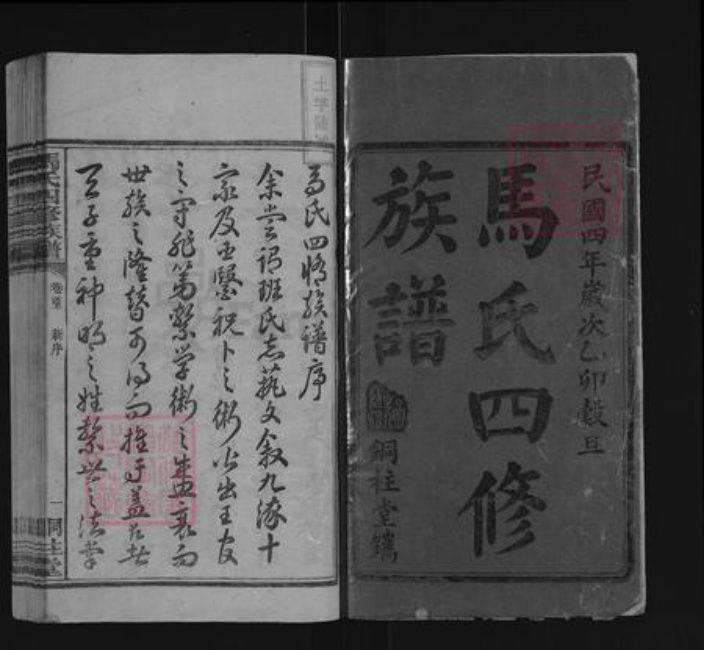 民國四年歲次乙卯穀旦
馬氏四修
族譜
銅柱堂鐫
馬氏四脩族譜序
余嘗謂班氏志藝文敘九流十
家及至醫祝卜之術必出王官
之守非第繫學術之盛衰而
世族之隆替可得而推尋蓋古者
天子重神明之姓繫世之法掌
馬氏四修族譜
新序
一
銅柱堂